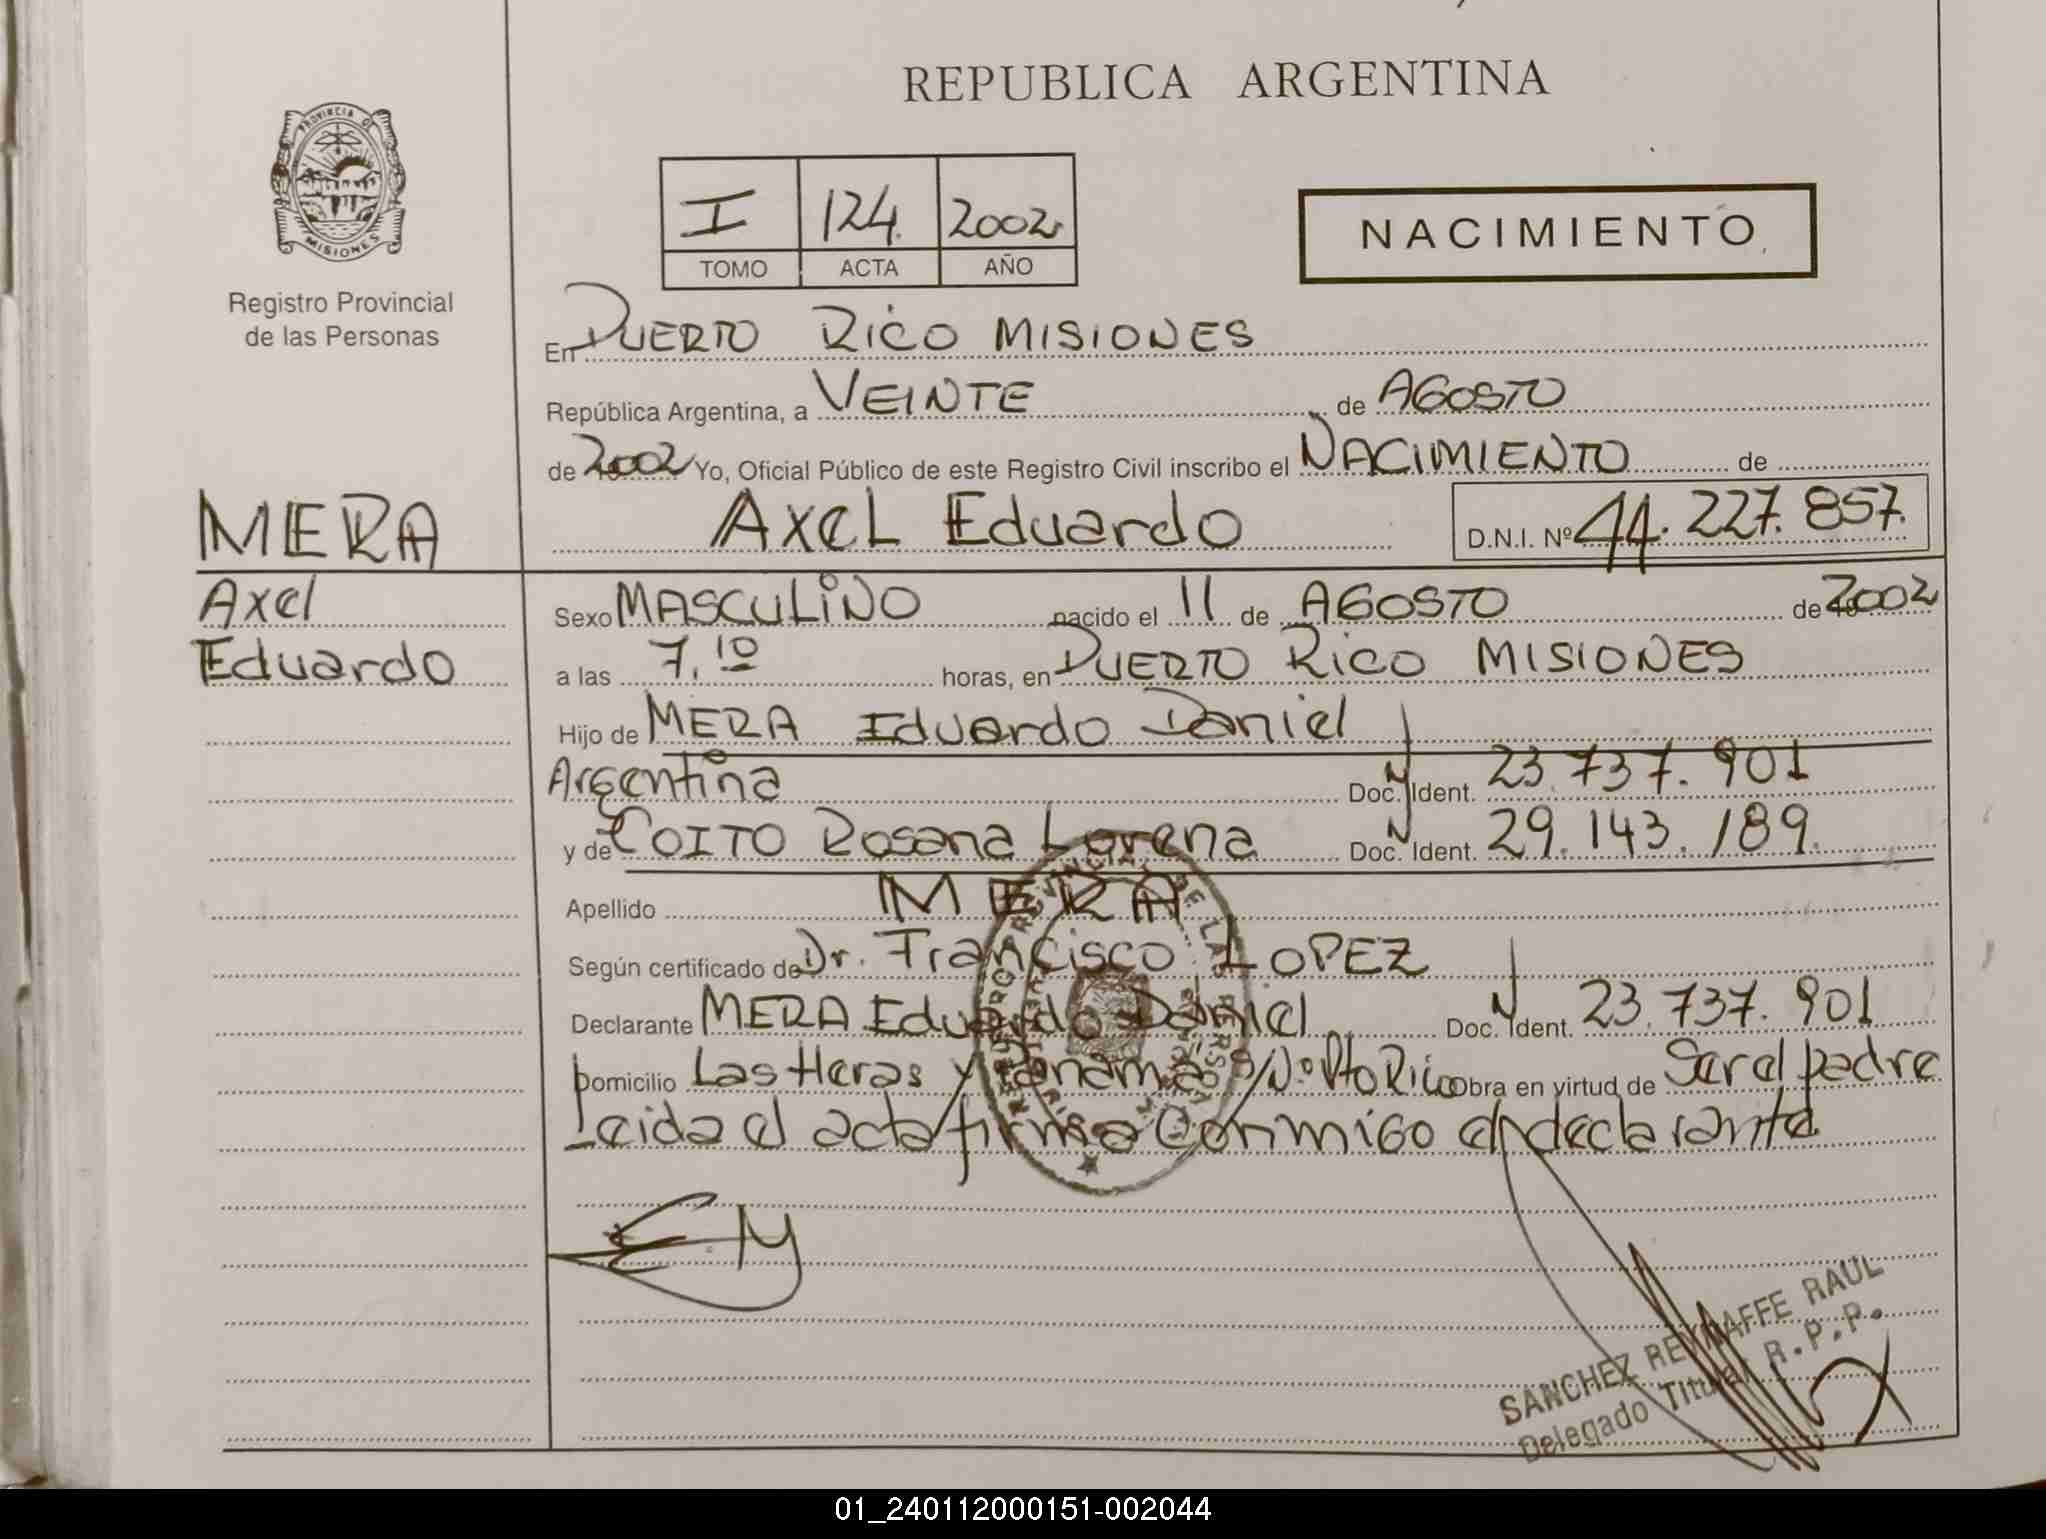 REPUBLICA ARGENTINA
PROVINCIA DE
MISIONES
Registro Provincial
de las Personas
I 124. 2002
TOMO ACTA AÑO
NACIMIENTO
En PUERTO RICO MISIONES
República Argentina, a VEINTE de AGOSTO
de 2002 Yo, Oficial Público de este Registro Civil inscribo el NACIMIENTO de
MERA
AXEL Eduardo D.N.I. Nº 44.227.857.
Axel
Eduardo
Sexo MASCULINO nacido el 11 de AGOSTO de 2002
a las 7.10 horas, en PUERTO RICO MISIONES
Hijo de MERA Eduardo Daniel
Argentina Doc. Ident. 23.737.901
y de COITO Rosana Lorena Doc. Ident. 29.143.189.
Apellido MERA
Según certificado de Dr. Francisco LOPEZ
Declarante MERA Eduardo Daniel Doc. Ident. 23.737.901
Domicilio Las Heras y Panamá S/Nº Pto Rico Obra en virtud de Ser el padre
Leida el acta firma conmigo el declarante.
EM
SANCHEZ RAUL
Delegado Titular R.P.P.
01_240112000151-002044